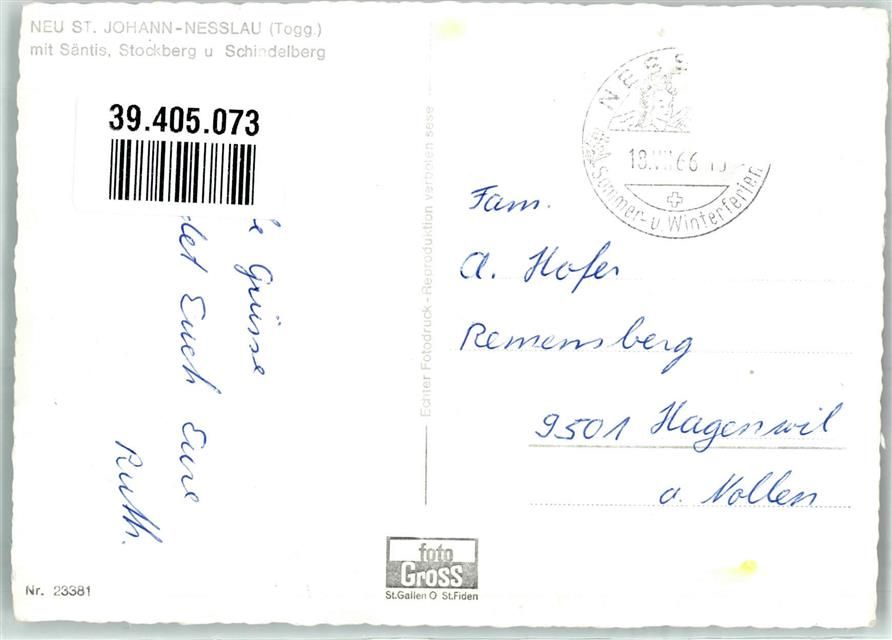 NEU ST. JOHANN-NESSLAU (Togg.)
mit Säntis, Stockberg u Schindelberg
39.405.073
Grüsse
Euch Eure
Ruth.
Nr. 23381
Echter Fotodruck - Reproduktion verboten
foto
Gross
St.Gallen O St.Fiden
NESS
18. 66
Sommer- u. Winterferien
Fam.
A. Hofer
Remensberg
9501 Hagenwil
a. Nollen